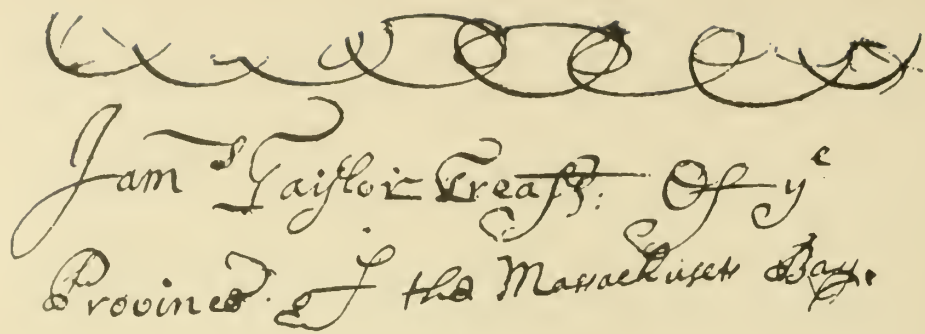 Jamˢ Taylor Treasʳ: Of yᵉ
Province of the Massachusets Bay.